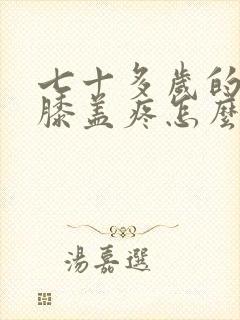 七十多歲的
膝盖疼怎麼
湯嘉選